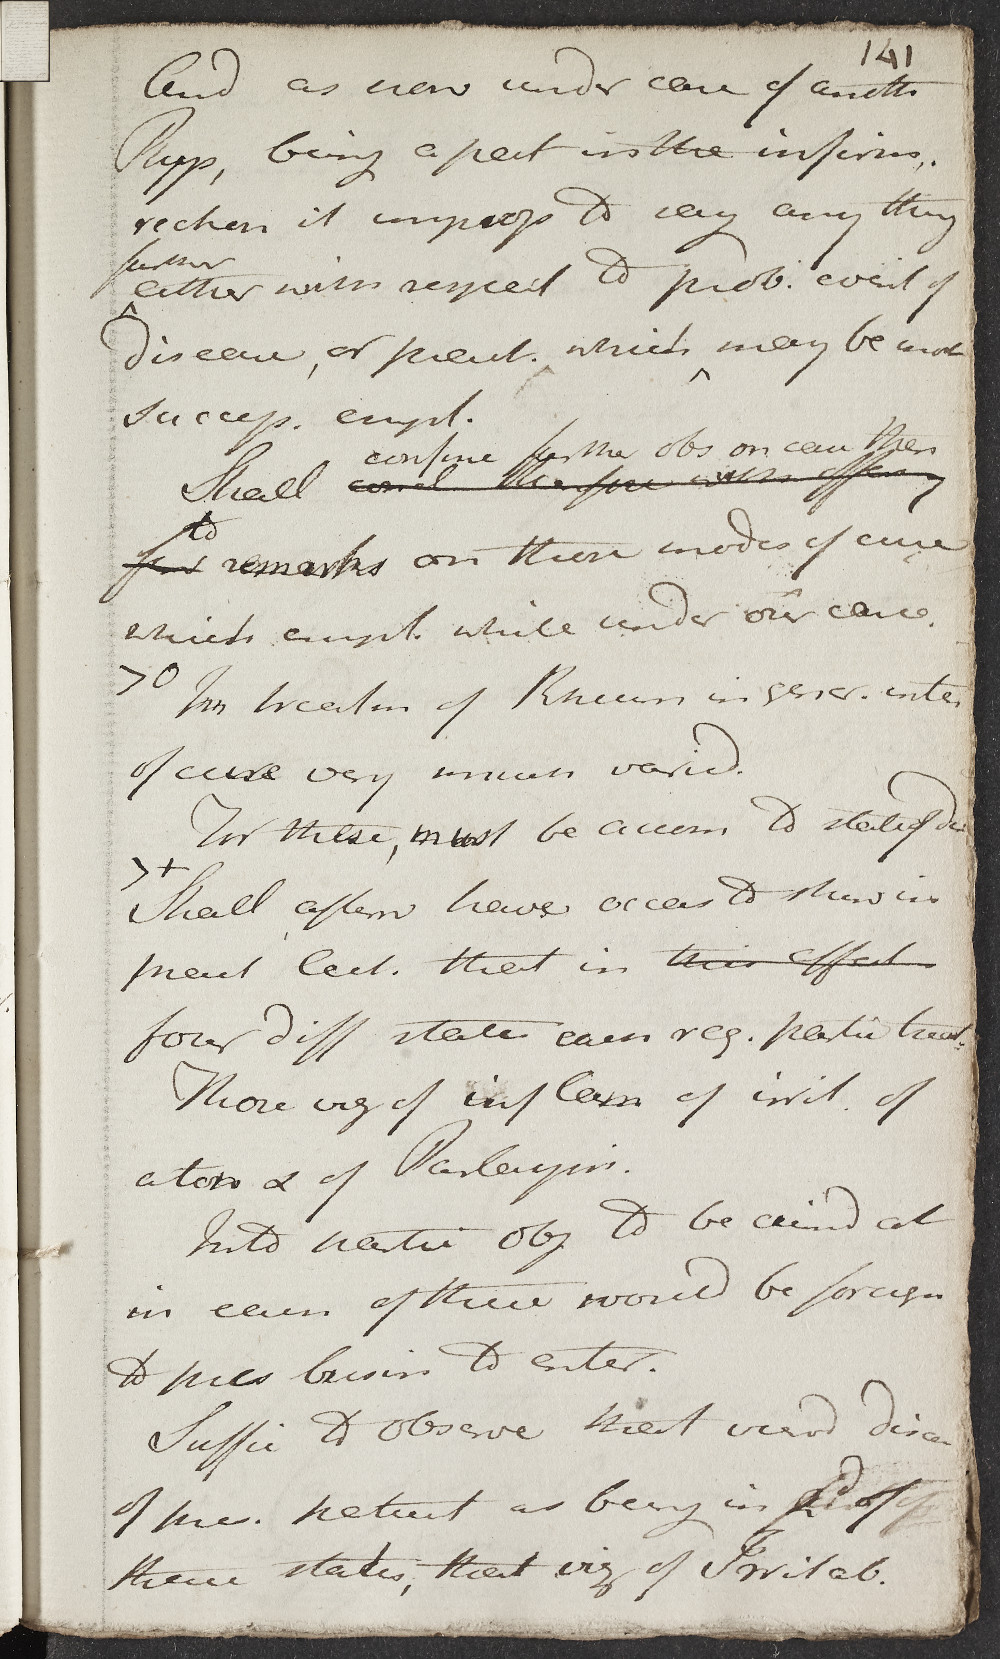 141
And as now under care of anoth
Phys, being a pat in the infirm.
reckon it improp to say any thing
further
either with respect to prob. event of
disease, or pract. which may be most
success. empl.
confine further obs on case then
Shall
to
for remarks on those modes of cure
which empl. while under our care.
>0 In treatm of Rheum in gener. inten
of cure very much varied.
For these, must be accom to state of dis
>+
Shall afterw have occas to show in
pract lect. that in this effect
four diff states each req. partic treat.
Those viz of inflam of irrit. of
aton & of
Into partic obj to be aimd at
in each of these would be foreign
to pres busin to enter.
Suffic to observe that viewd disea
of pres. patient as being in 2d of
these states, that viz of Irritab.